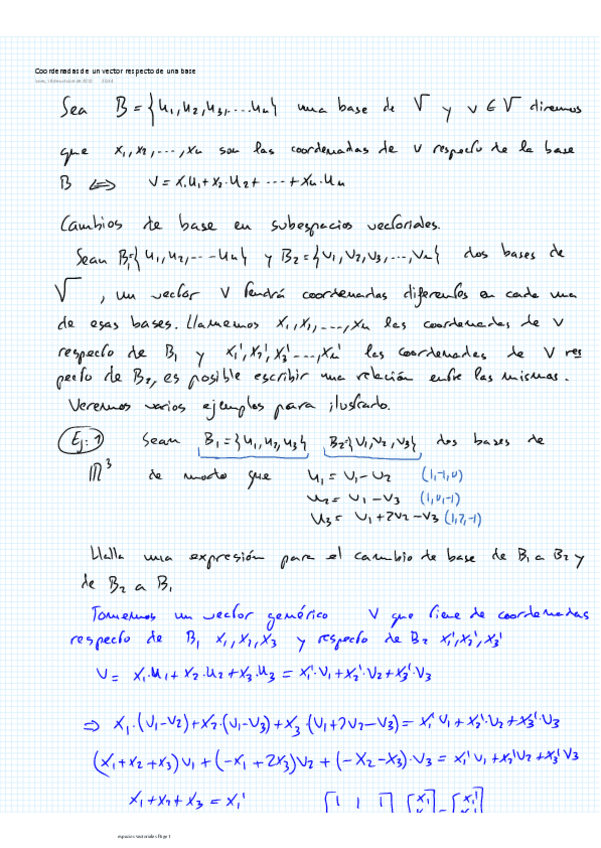 Coordenadas de un vector respecto de una base
Sea B = {u₁, u₂, u₃, ... uₙ} una base de V y v ∈ V diremos
que x₁, x₂, ..., xₙ son las coordenadas de v respecto de la base
B ⟺ v = x₁·u₁ + x₂·u₂ + ··· + xₙ·uₙ
Cambios de base en subespacios vectoriales.
Sean B₁={u₁, u₂, --- uₙ} y B₂={v₁, v₂, v₃, ..., vₙ} dos bases de
V, un vector v tendrá coordenadas diferentes en cada una
de esas bases. Llamemos x₁, x₁, ..., xₙ las coordenadas de v
respecto de B₁ y x₁', x₂', x₃' ..., xₙ' las coordenadas de v res
pecto de B₂, es posible escribir una relación entre las mismas.
Veremos varios ejemplos para ilustrado.
Ej: 1 Sean B₁={u₁, u₂, u₃} B₂={v₁, v₂, v₃} dos bases de
ℝ³ de modo que u₁ = v₁ - v₂ (1,-1,0)
u₂ = v₁ - v₃ (1,0,-1)
u₃ = v₁ + 2v₂ - v₃ (1,2,-1)
Halla una expresión para el cambio de base de B₁ a B₂ y
de B₂ a B₁
Tomemos un vector genérico v que tiene de coordenadas
respecto de B₁ x₁, x₂, x₃ y respecto de B₂ x₁', x₂', x₃'
v = x₁·u₁ + x₂·u₂ + x₃·u₃ = x₁'·v₁ + x₂'·v₂ + x₃'·v₃
⇒ x₁·(v₁-v₂) + x₂·(v₁-v₃) + x₃·(v₁+2v₂-v₃) = x₁'v₁ + x₂'·v₂ + x₃'·v₃
(x₁+x₂+x₃)v₁ + (-x₁+2x₃)v₂ + (-x₂-x₃)·v₃ = x₁'v₁ + x₂'v₂ + x₃'v₃
x₁ + x₂ + x₃ = x₁' [1 1 1] [x₁] = [x₁']
espacios vectoriales Page 1